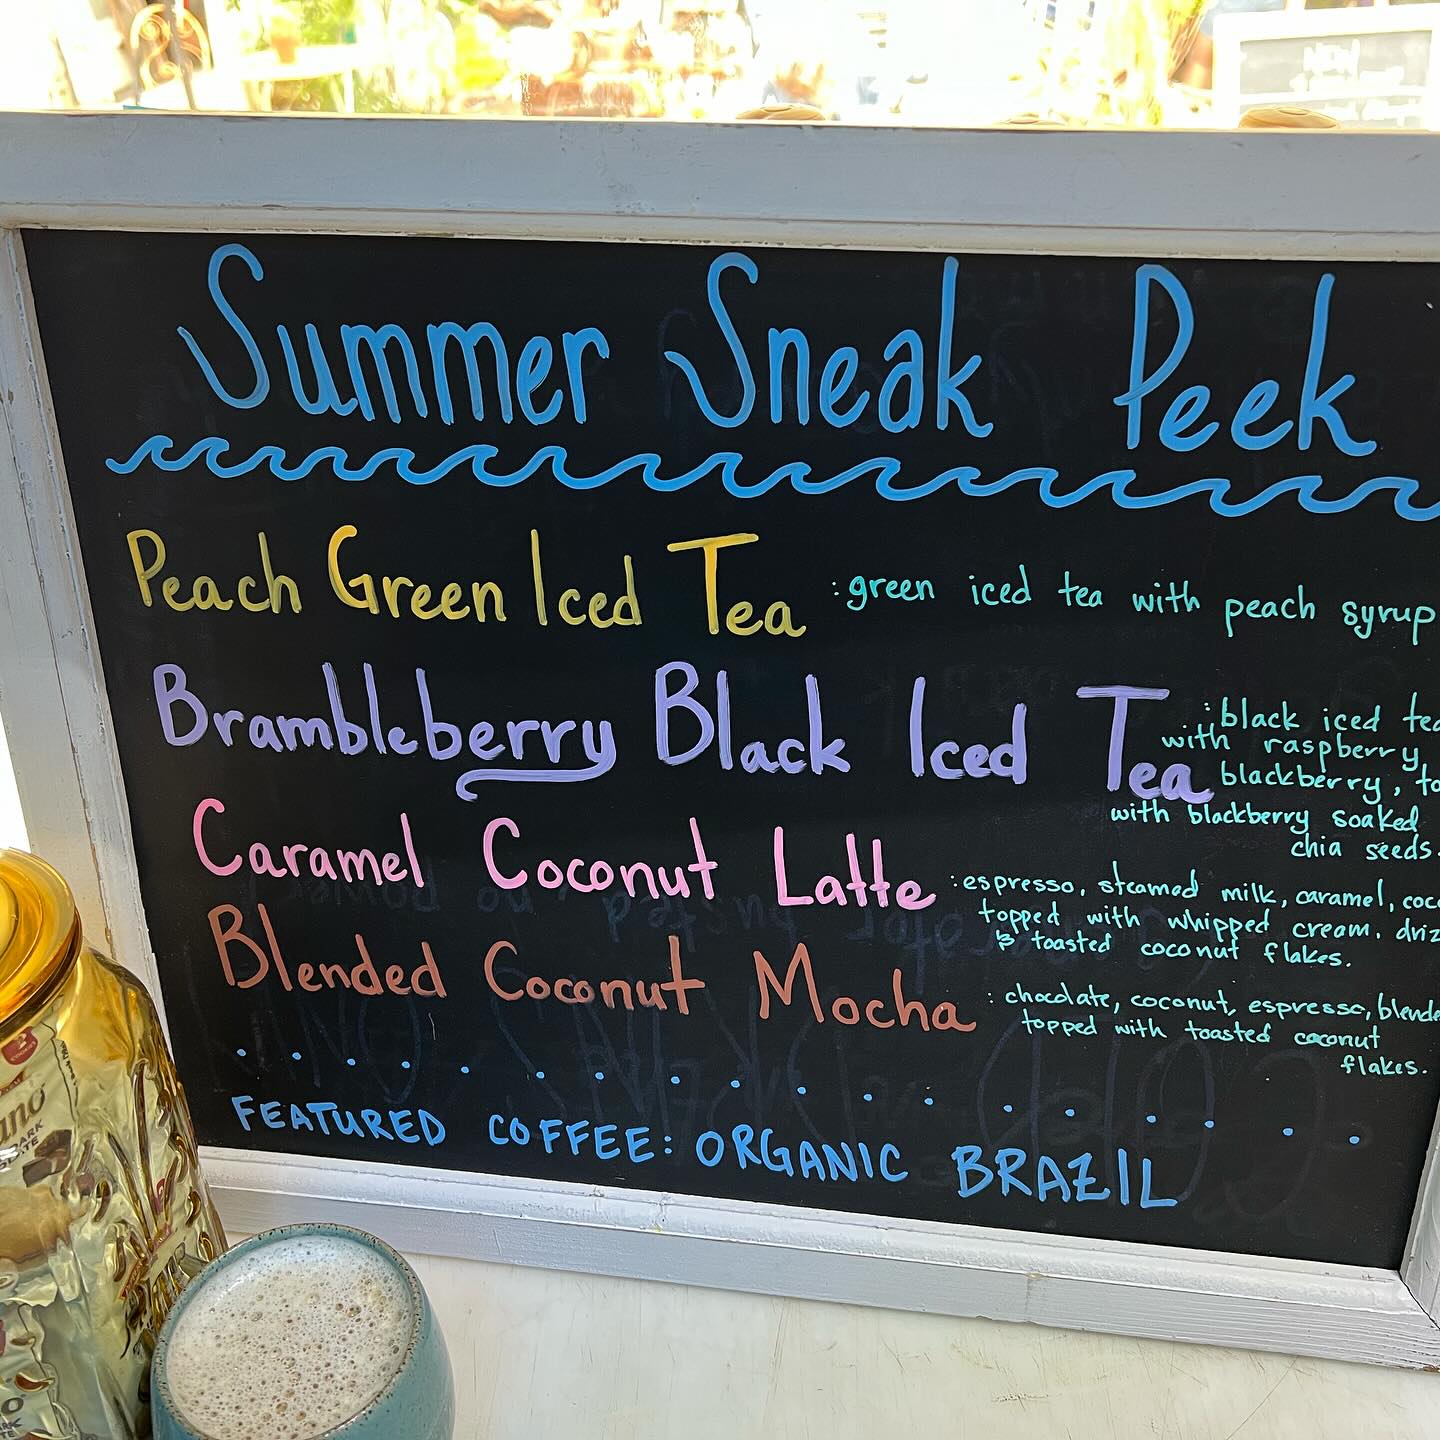 Summer Sneak Peek
Peach Green Iced Tea : green iced tea with peach syrup
Brambleberry Black Iced Tea : black iced
with raspberry
blackberry,
with blackberry soaked
chia seeds.
Caramel Coconut Latte : espresso, steamed milk, caramel,
topped with whipped cream.
& toasted coconut flakes.
Blended Coconut Mocha : chocolate, coconut, espresso,
topped with toasted coconut
flakes.
FEATURED COFFEE: ORGANIC BRAZIL
DARK